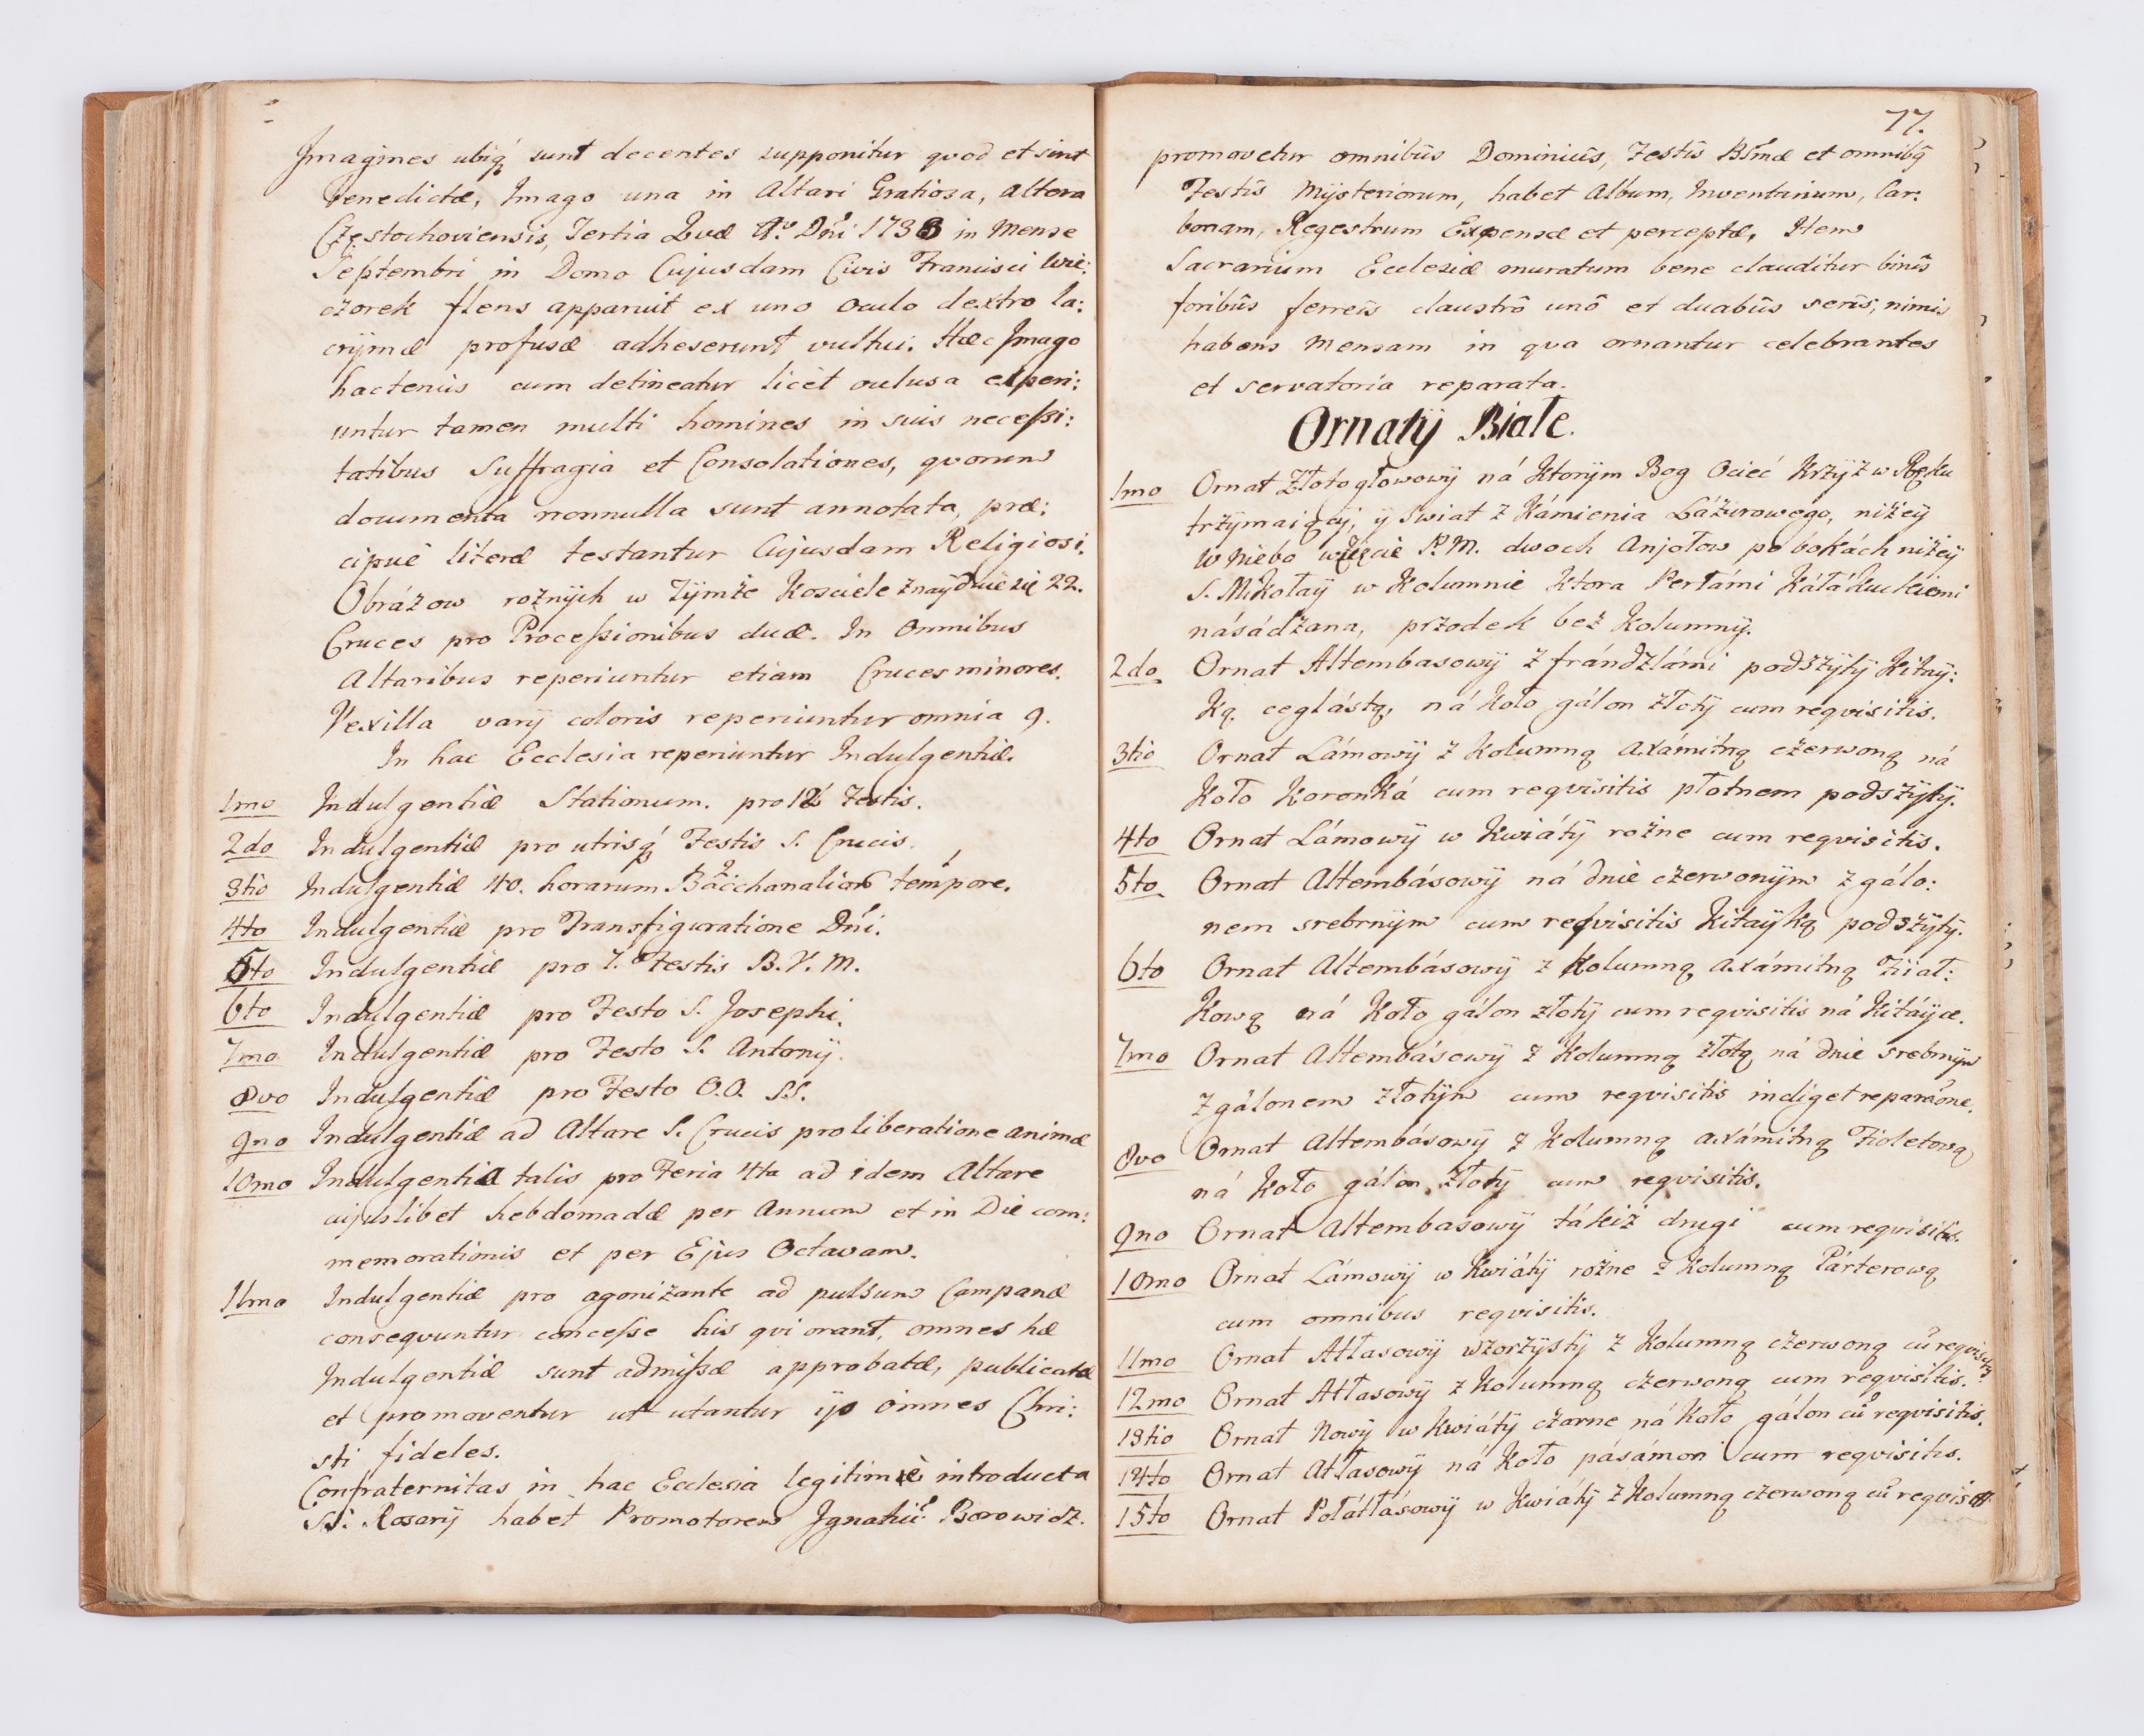 Imagines ubiq́ sunt decentes supponitur qvod et sint
benedictæ, Imago una in Altari Gratiosa, altera
Częstochoviensis, Tertia Qvæ Aͦ Dńi 1738 in Mense
Septembri in Domo Cujusdam Civis Francisci Wie:
czorek flens apparuit ex uno oculo dextro la:
crÿmæ profusæ adheserunt vultui. Hæc Imago
hactenus cum detineatur licèt oclusa experi:
untur tamen multi homines in suis necessi:
tatibus Suffragia et Consolationes, qvorum
documenta nonnulla sunt annotata, præ:
cipuè literæ testantur Cujusdam Religiosi.
Obrázow rożnÿch w Tÿmże Kosciele znaÿduie się 22.
Cruces pro Processionibus duæ. In Omnibus
Altaribus reperiuntur etiam Cruces minores.
Vexilla varÿ coloris reperiuntur omnia 9.
In hac Ecclesia reperiuntur Indulgentiæ.
1mo Indulgentiæ Stationum. pro Festis.
2do Indulgentiæ pro utrisq́ Festis S. Crucis.
3tio Indulgentiæ 40. horarum Bacchanalior tempore.
4to Indulgentiæ pro Transfiguratione Dńi.
5to Indulgentiæ pro 7. Festis B. V. M.
6to Indulgentiæ pro Festo S. Josephi.
7mo Indulgentiæ pro Festo S. Antonÿ.
8vo Indulgentiæ pro Festo O.O. SS.
9no Indulgentiæ ad Altare S. Crucis pro liberatione animæ
10mo Indulgentiæ talis pro Feria 4ta ad idem Altare
cujuslibet hebdomadæ per Annum et in Die com:
memorationis et per Ejus Octavam.
11mo Indulgentiæ pro agonizante ad pulsum Campanæ
conseqvuntur concesse his qvi orant, omnes hæ
Indulgentiæ sunt admissæ approbatæ, publicatæ
et promoventur ut utantur ijs omnes Chri:
sti fideles.
Confraternitas in hac Ecclesia legitimè introducta
SS: Rosarÿ habet Promotorem Ignatiũ Borowicz.
77.
promovetur omnibûs Dominicîs, Festîs Bṁæ et omnibq̃
Festîs Mÿsteriorum, habet Album, Inventarium, Car:
bonam, Regestrum Expensæ et perceptæ, Item
Sacrarium Ecclesiæ muratum bene clauditur binîs
foribûs ferreîs claustrô unô et duabûs serîs, nimis
habens Mensam in qva ornantur celebrantes
et servatoria reparata.
Ornatÿ Białe.
1mo Ornat Złotogłowowÿ ná Ktorÿm Bog Ociec Krzÿż w Ręku
trzÿmaiącÿ, ÿ swiat z Kámienia Lázurowego, niżeÿ
W Niebo wzięcie P.M. dwoch Anjołow po bokách niżeÿ
S. Mikołaÿ w Kolumnie Ktora Perłámi Káłákuckiemi
násádzana, przodek bez Kolumnÿ.
2do Ornat Altembasowÿ z frándzlámi podszÿtÿ Kitaÿ:
Ką ceglástą, ná Koło gálon złotÿ cum reqvisitis.
3tio Ornat Lámowÿ z Kolumną axámitną czerwoną ná
Koło Koronká cum reqvisitis płotnem podszÿtÿ.
4to Ornat Lámowÿ w Kwiátÿ rożne cum reqvisitis.
5to Ornat Altembásowÿ ná dnie czerwonÿm z gálo:
nem srebrnÿm cum reqvisitis Kitaÿką podszÿtÿ.
6to Ornat Altembásowÿ z Kolumną axámitną Fiiał:
Kową ná Koło gálon złotÿ cum reqvisitis ná Kitáÿce.
7mo Ornat Altembásowÿ z Kolumną złotą ná dnie srebrnÿm
z gálonem złotÿm cum reqvisitis indiget reparaõne.
8vo Ornat Altembásowÿ z Kolumną axámitną Fioletową
ná Koło gálon złotÿ cum reqvisitis.
9no Ornat Altembasowÿ tákiż drugi cum reqvisitis.
10mo Ornat Lámowÿ w Kwiátÿ rożne z Kolumną Párterową
cum omnibus reqvisitis.
11mo Ornat Atłasowÿ wzorzÿstÿ z Kolumną czerwoną cũ reqvisitis
12mo Ornat Atłasowÿ z Kolumną czerwoną cum reqvisitis.
13tio Ornat Nowÿ w Kwiátÿ czarne ná Koło gálon cũ reqvisitis.
14to Ornat Atłasowÿ ná Koło pásámon cum reqvisitis.
15to Ornat Połátłásowÿ w Kwiátÿ z Kolumną czerwoną cũ reqvisit